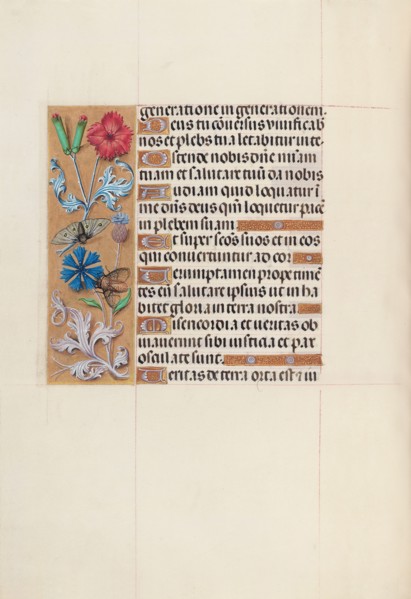 generatione in generationem.
Deus tu cōversus vivificab
nos et plebs tua letabitur in te.
Ostende nobis dn̄e miām
tuam et salutare tuū da nobis
Audiam quid loquatur ī
me dn̄s deus qm̄ loquetur pacē
in plebem suam
Et super sc̄os suos et in eos
qui convertuntur ad cor
Verumptamen prope timē
tes eū salutare ipsius ut in ha
bitet gloria in terra nostra
Misericordia et veritas ob
viaverunt sibi iusticia et pax
osculate sunt.
Veritas de terra orta est et iu